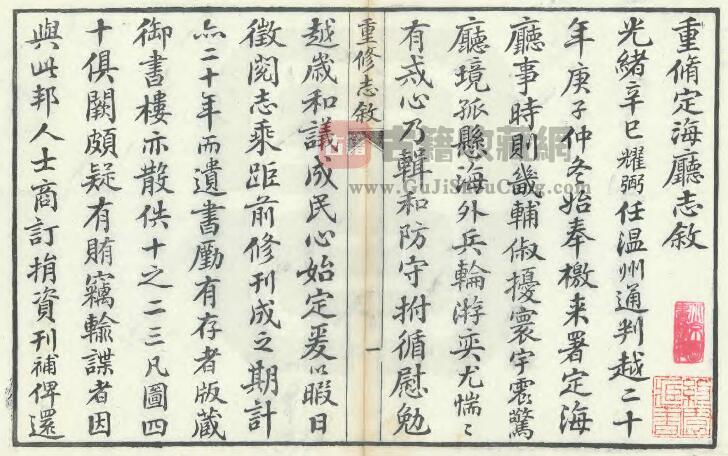 重脩定海廳志敘
光緒辛巳耀弼任温州通判越二十
年庚子仲冬始奉檄来署定海
廳事時則畿輔俶擾寰宇震驚
廳境孤懸海外兵輪游奕尤惴〻
有戒心乃輯和防守拊循慰勉
重修志敘
一
越歲和議成民心始定爰以暇日
徵閲志乘距前修刊成之期計
二十年而遺書尠有存者版藏
御書樓亦散佚十之二三凡圖四
十俱闕頗疑有賄竊輸諜者因
與此邦人士商訂捐資刊補俾還
古籍 網
www.GuJiShuCang.com